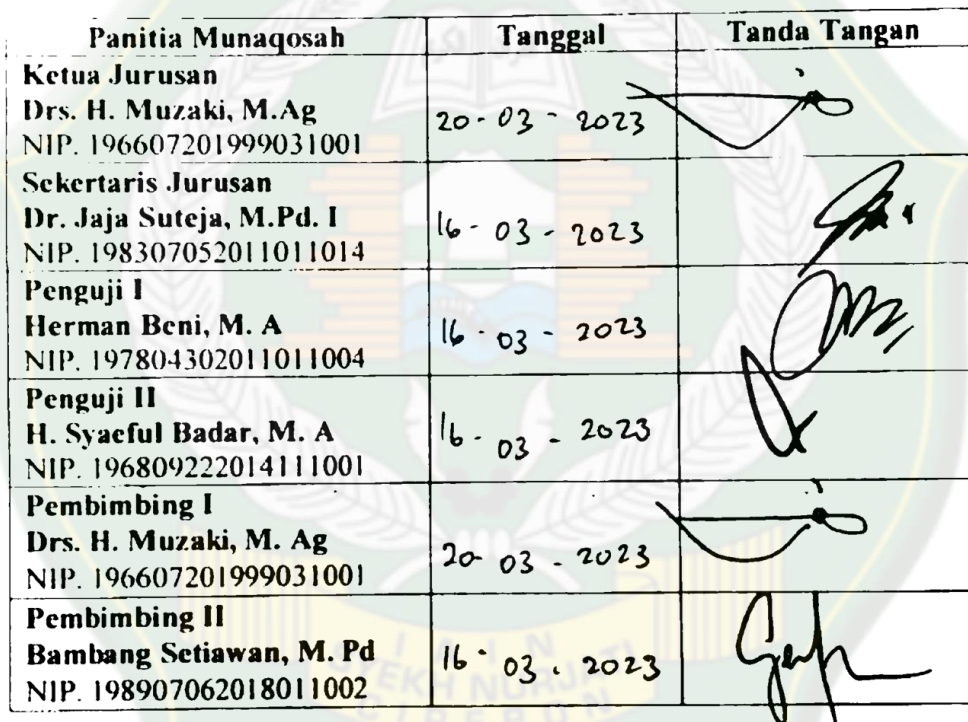 Panitia Munaqosah Tanggal Tanda Tangan
Ketua Jurusan
Drs. H. Muzaki, M.Ag
NIP. 196607201999031001
20 - 03 - 2023
Sekertaris Jurusan
Dr. Jaja Suteja, M.Pd. I
NIP. 198307052011011014
16 - 03 - 2023
Penguji I
Herman Beni, M. A
NIP. 197804302011011004
16 - 03 - 2023
Penguji II
H. Syaeful Badar, M. A
NIP. 196809222014111001
16 - 03 - 2023
Pembimbing I
Drs. H. Muzaki, M. Ag
NIP. 196607201999031001
20 - 03 - 2023
Pembimbing II
Bambang Setiawan, M. Pd
NIP. 198907062018011002
16 - 03 - 2023
IAIN
SYEKH NURJATI
CIREBON